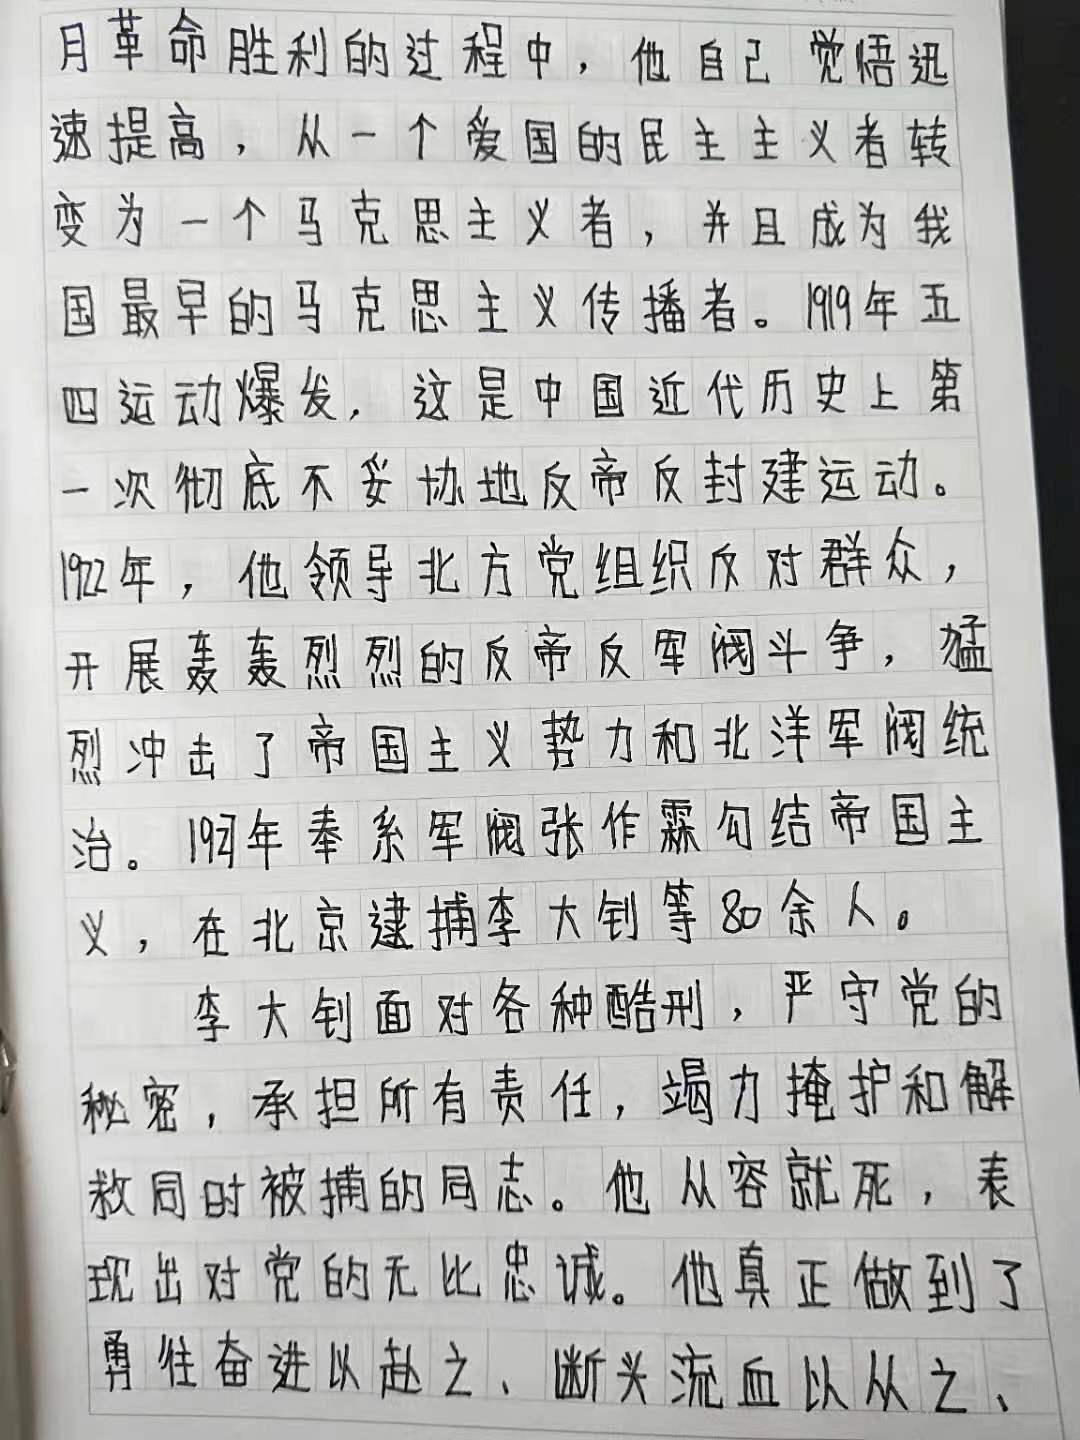 月革命胜利的过程中，他自己觉悟迅
速提高，从一个爱国的民主主义者转
变为一个马克思主义者，并且成为我
国最早的马克思主义传播者。1919年五
四运动爆发，这是中国近代历史上第
一次彻底不妥协地反帝反封建运动。
1922年，他领导北方党组织反对群众，
开展轰轰烈烈的反帝反军阀斗争，猛
烈冲击了帝国主义势力和北洋军阀统
治。1927年奉系军阀张作霖勾结帝国主
义，在北京逮捕李大钊等80余人。
李大钊面对各种酷刑，严守党的
秘密，承担所有责任，竭力掩护和解
救同时被捕的同志。他从容就死，表
现出对党的无比忠诚。他真正做到了
勇往奋进以赴之、断头流血以从之、